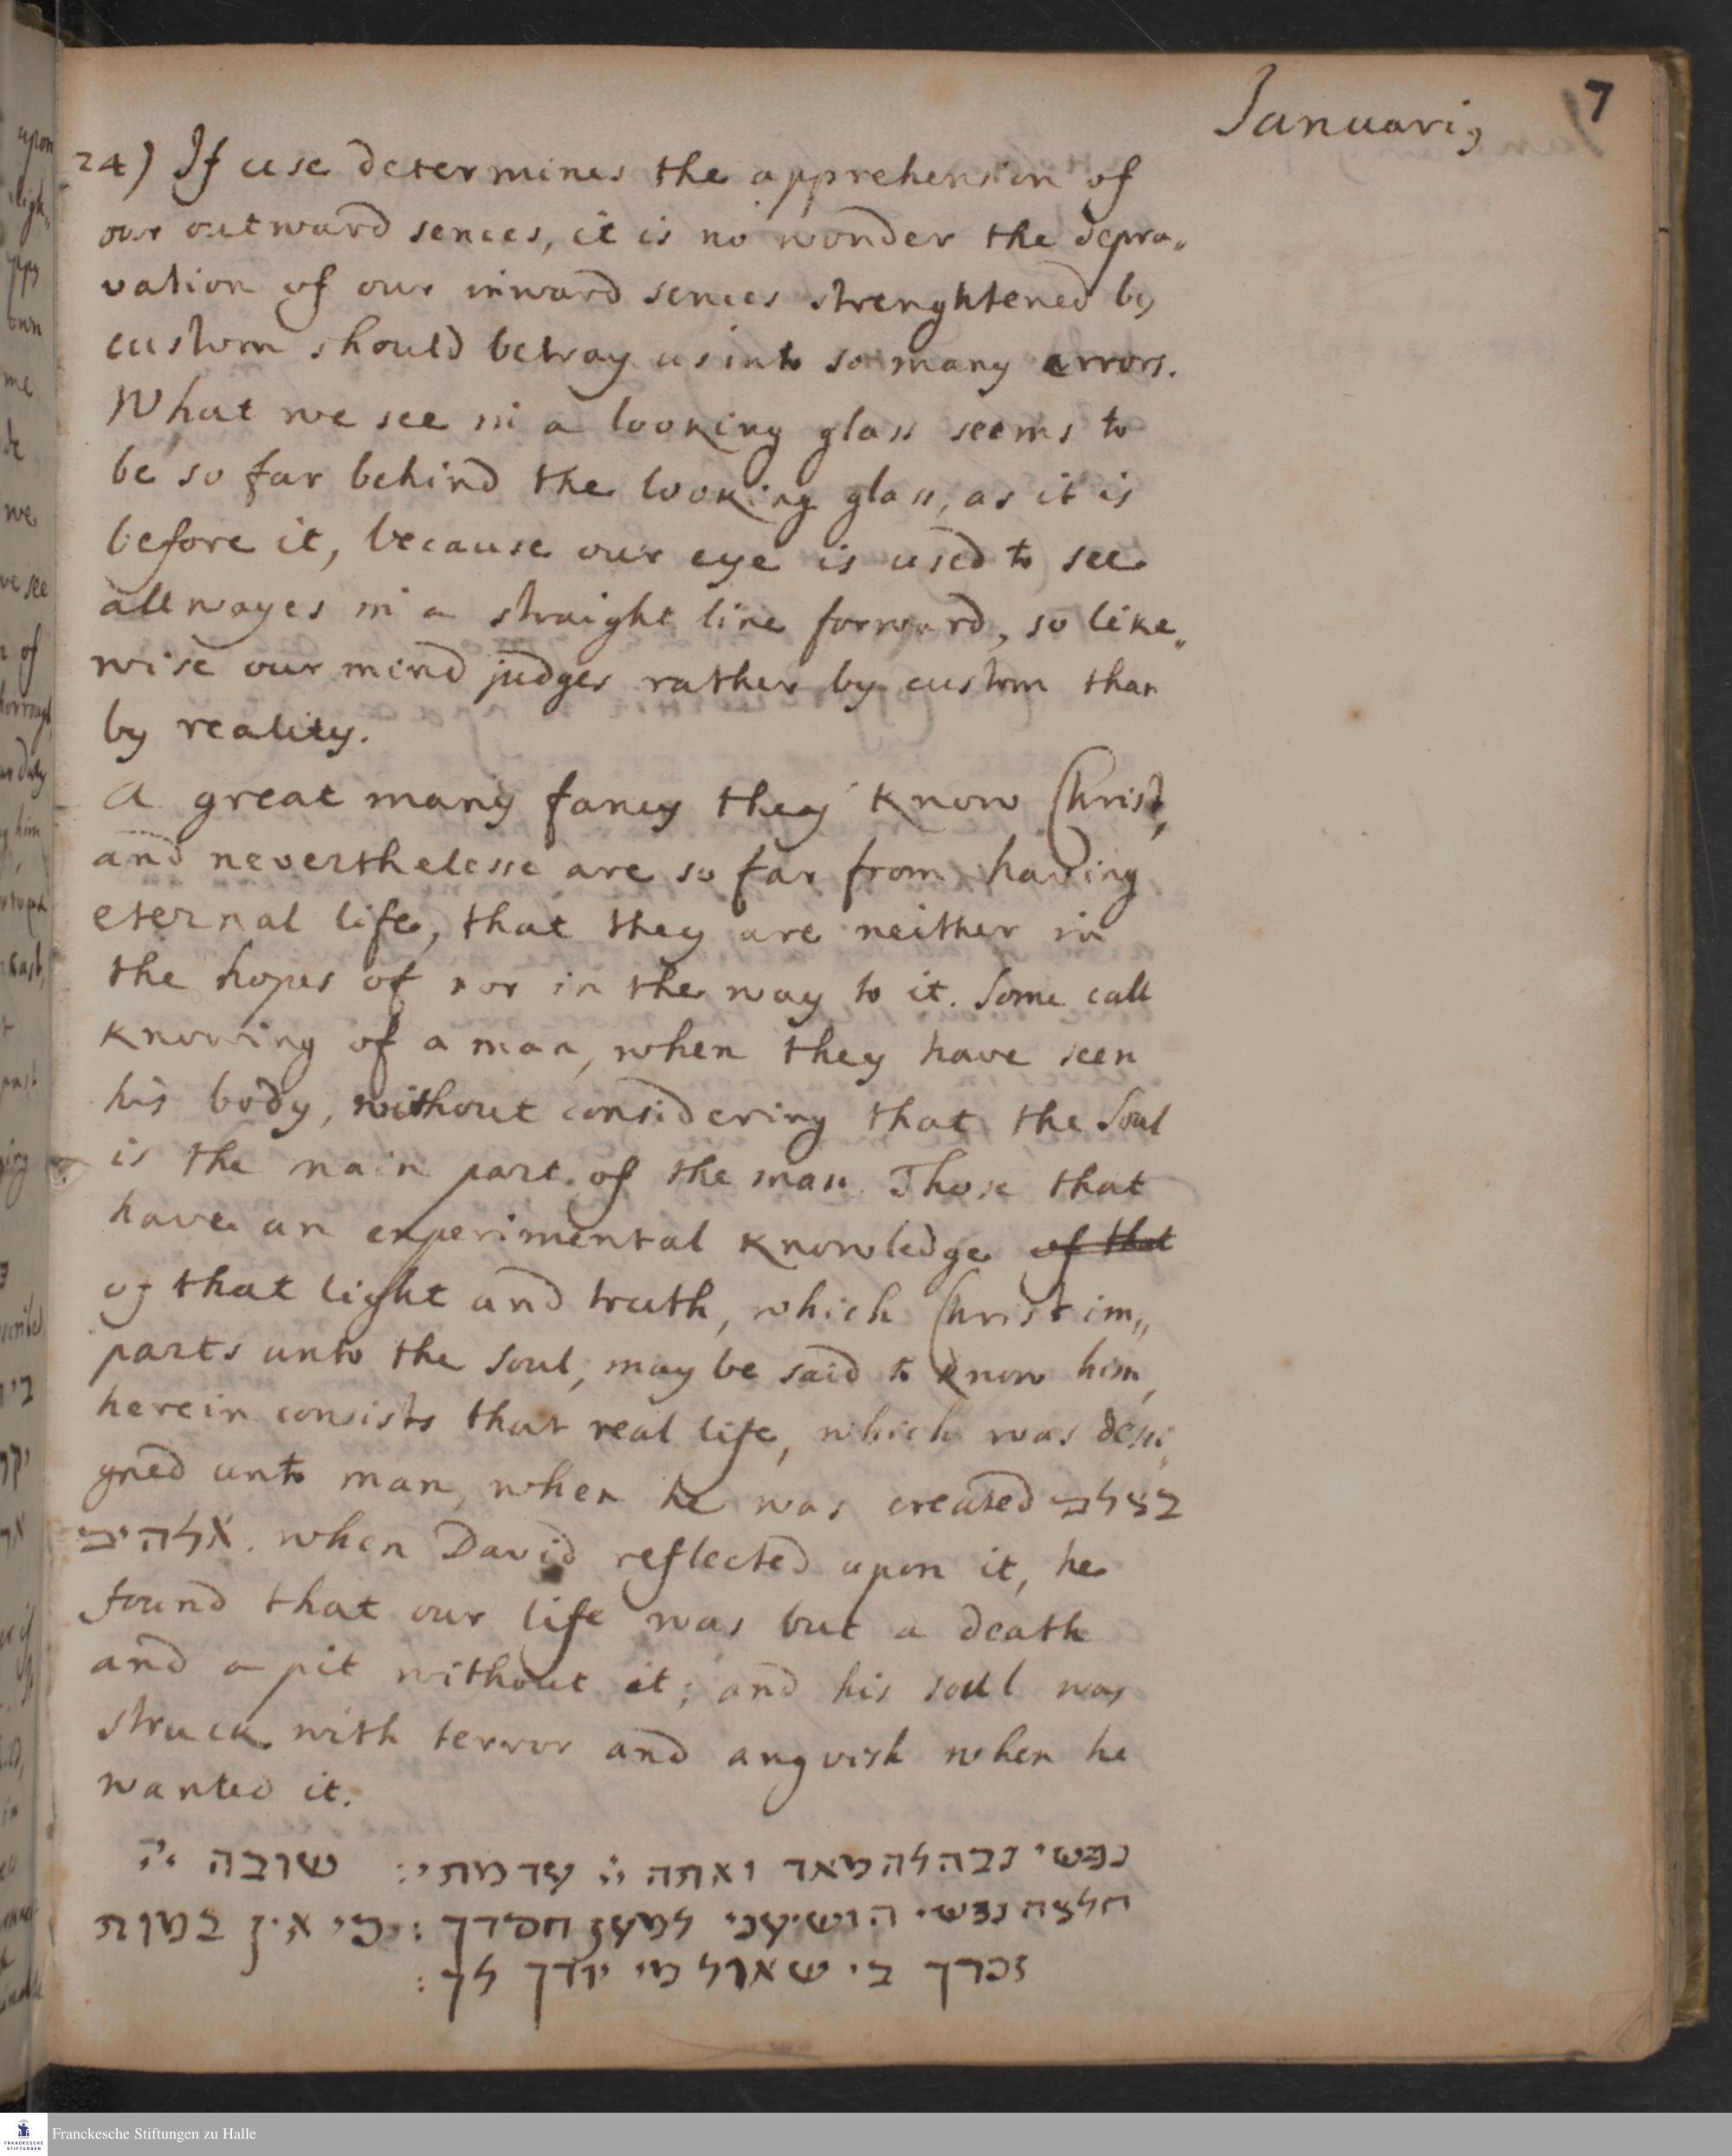 Januarij 7
24) If use determines the apprehension of
our outward sences, it is no wonder the depra„
vation of our inward sences strenghtened by
custom should betray us into so many errors.
What we see in a looking glass seems to
be so far behind the looking glass, as it is
before it, because our eye is used to see
allwayes in a straight line forward, so like„
wise our mind judges rather by custom than
by reality.
A great many fancy they know Christ,
and neverthelesse are so far from having
eternal life, that they are neither in
the hopes of nor in the way to it. Some call
knowing of a man, when they have seen
his body, without considering that the Soul
is the main part of the man. Those that
have an experimental knowledge of that
of that light and truth, which Christ im„
parts unto the Soul, may be said to know him,
herein consists that real life, which was desi„
gned unto man, when he was created בצלם
אלהים. when David reflected upon it, he
found that our life was but a death
and a pit without it; and his soul was
struck with terror and anguish when he
wanted it.
נפשי נבהלה מאד ואתה יי עד מתי: שובה יי
חלצה נפשי הושיעני למען חסדך: כי אין במות
זכרך בי שאול מי יודך לך:
Franckesche Stiftungen zu Halle